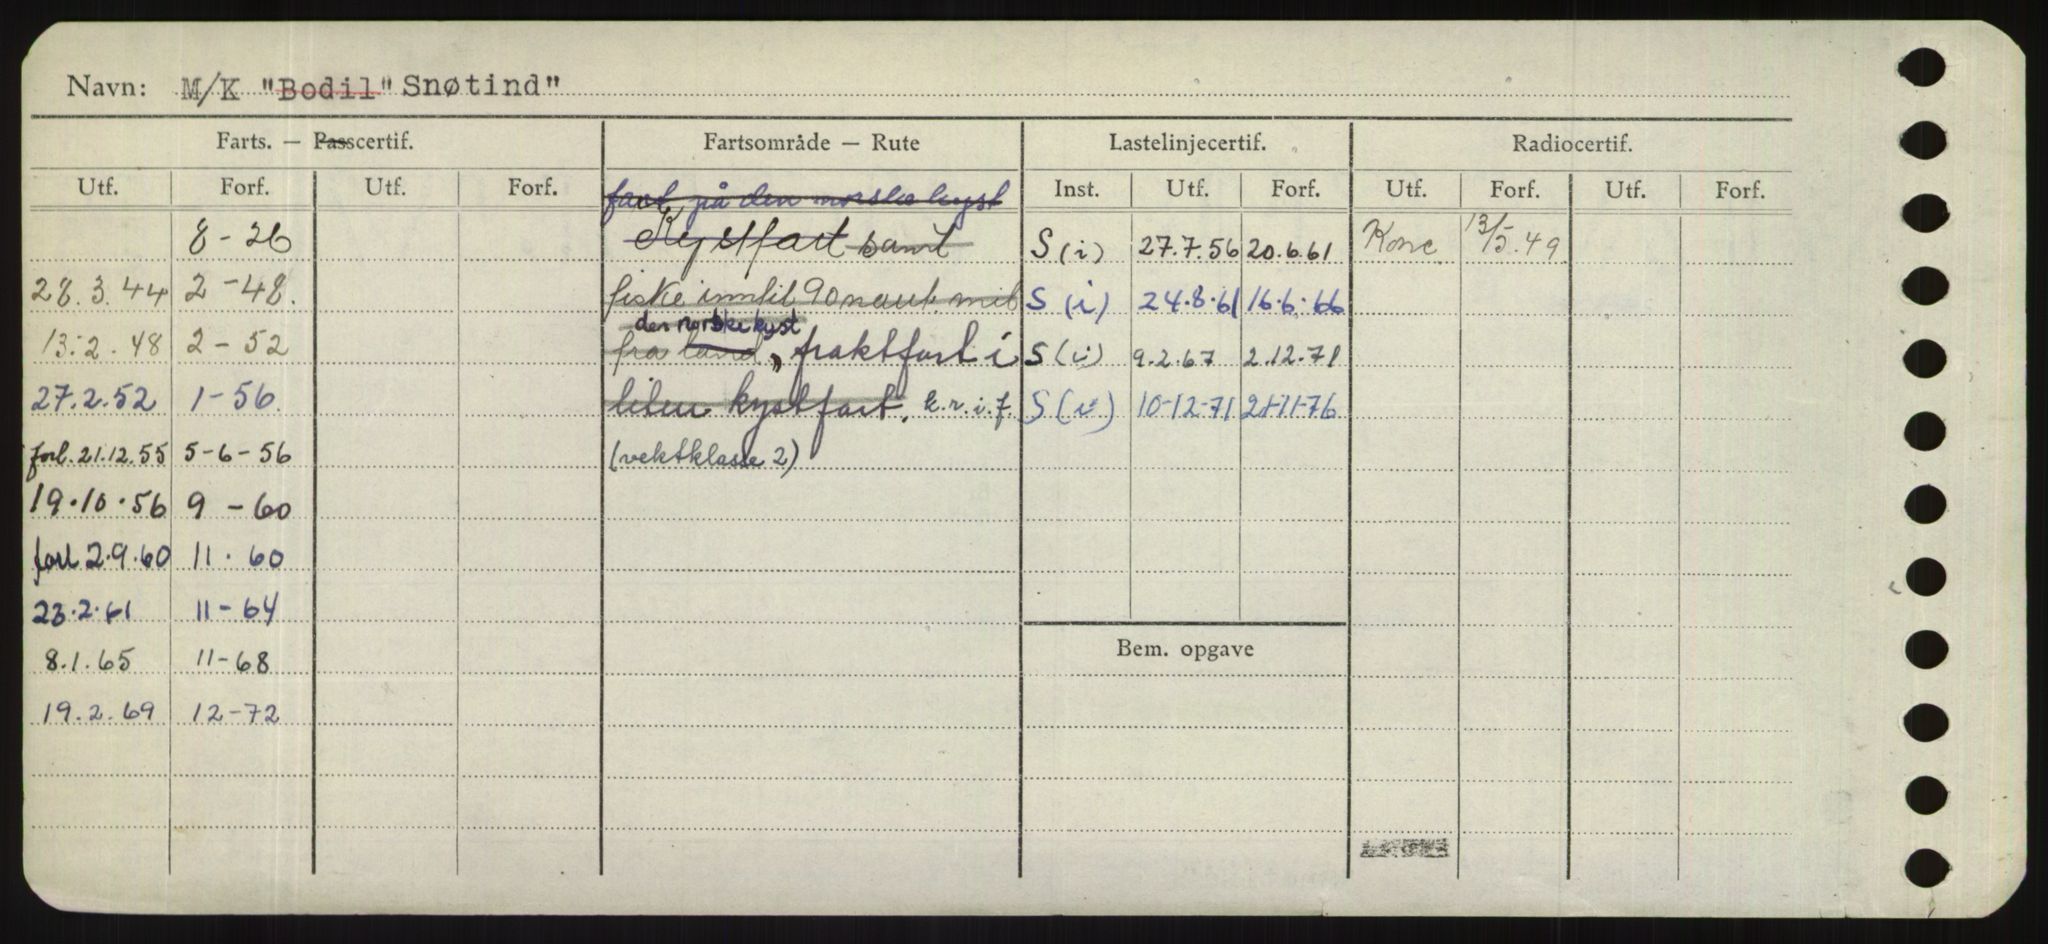 Navn: M/K "Bodil" Snøtind"
Farts. — Passcertif. Fartsområde — Rute Lastelinjecertif. Radiocertif.
Utf. Forf. Utf. Forf. Inst. Utf. Forf. Utf. Forf. Utf. Forf.
fart på den norske kyst
8-26 Kystfart samt S (i) 27.7.56 20.6.61 Konc. 13/5.49
28.3.44 2-48. fiske inntil 90 naut. mil S (i) 24.8.61 16.6.66
den norske kyst
13.2.48 2-52 fra land, fraktfart i S (i) 9.2.67 2.12.71
27.2.52 1-56. liten kystfart. k.r.i.f. S (i) 10-12-71 21-11-76
forl. 21.12.55 5-6-56 (vektklasse 2)
19.10.56 9-60
forl 2.9.60 11.60
23.2.61 11-64
Bem. opgave
8.1.65 11-68
19.2.69 12-72